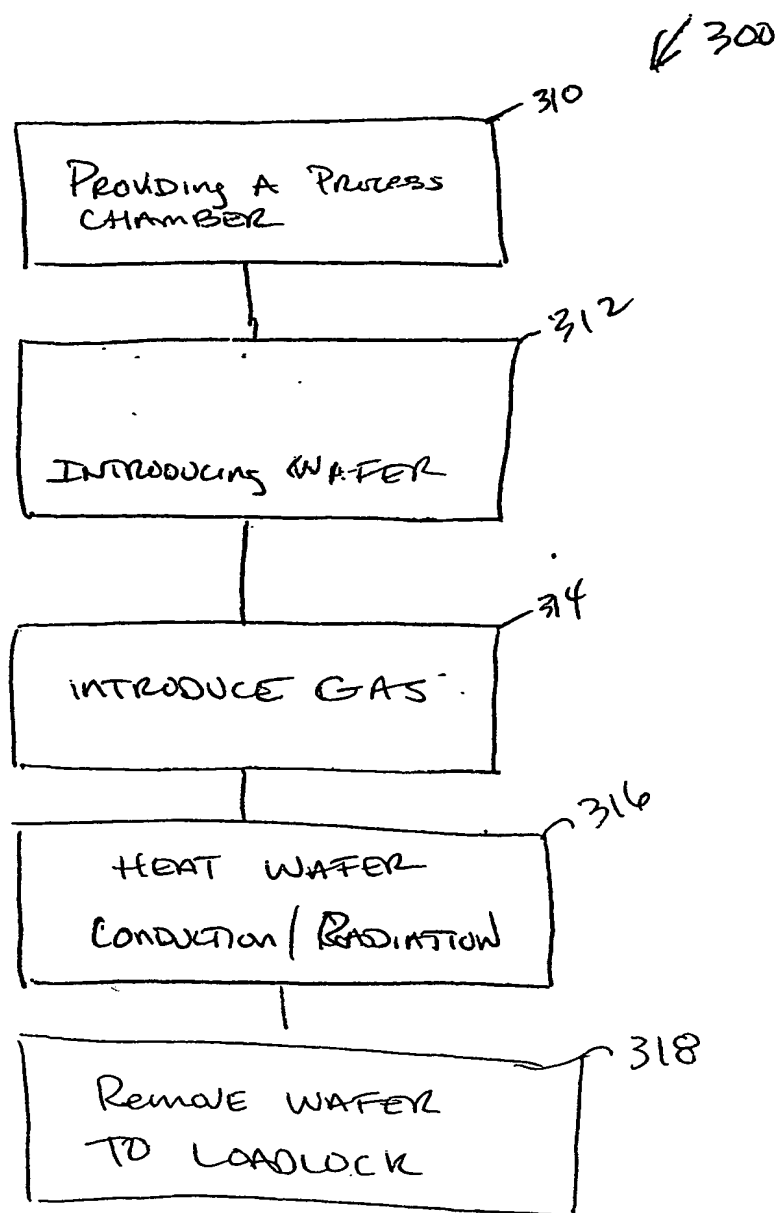 300
310
PROVIDING A PROCESS
CHAMBER
312
INTRODUCING WAFER
314
INTRODUCE GAS
316
HEAT WAFER
CONDUCTION / RADIATION
318
REMOVE WAFER
TO LOADLOCK